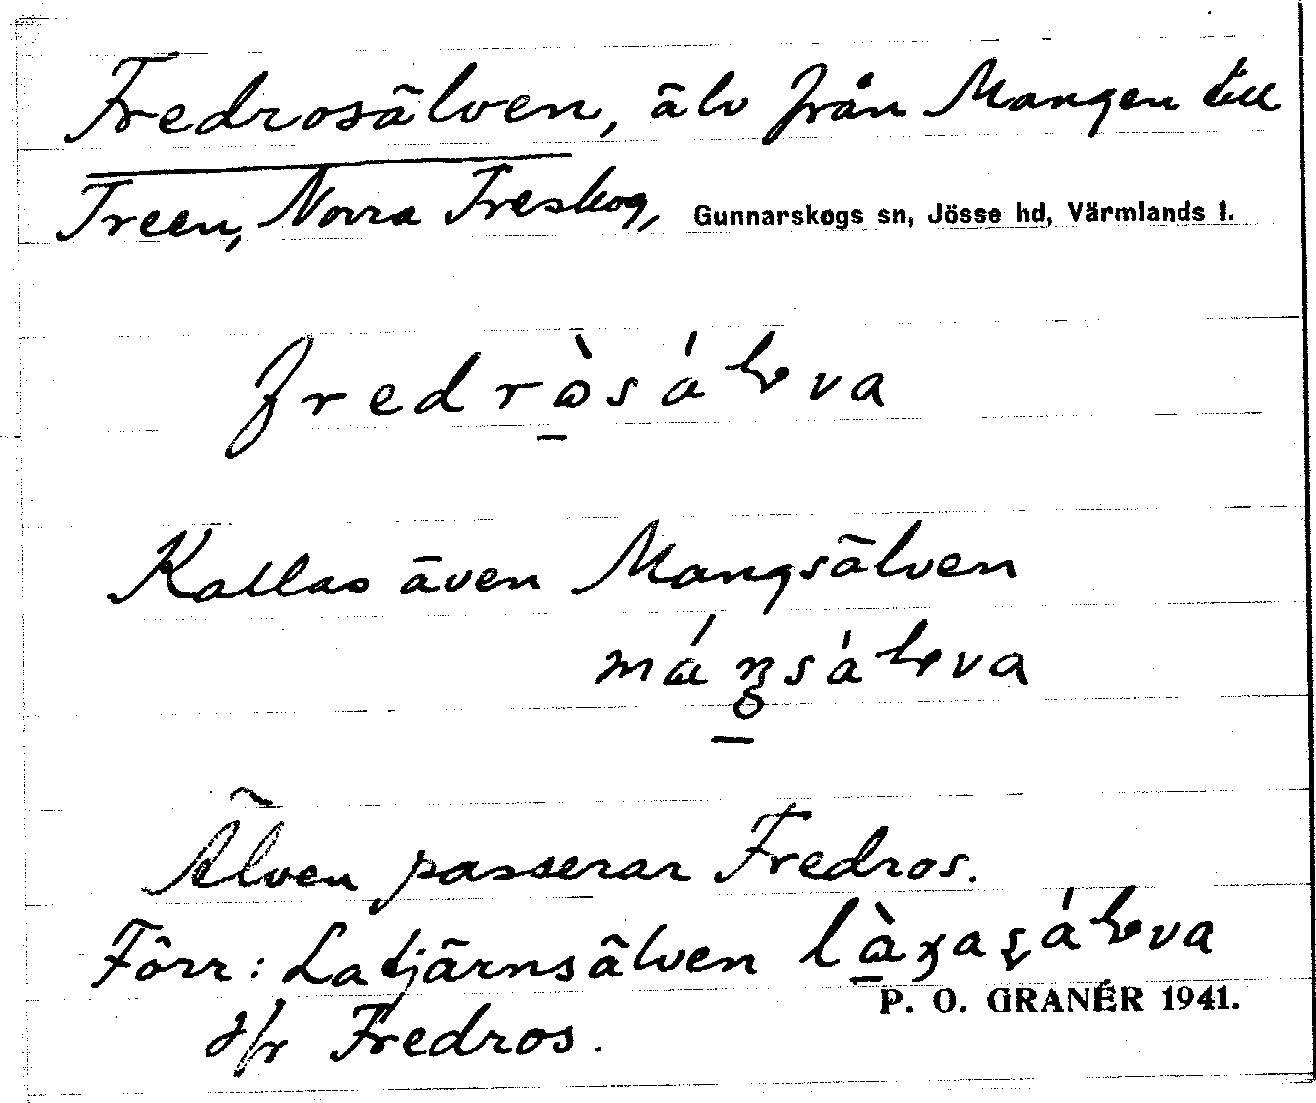 Fredrosälven, älv från Mangen till
Treen, Norra Treskog, Gunnarskogs sn, Jösse hd, Värmlands l.
Kallas även Mangsälven
Älven passerar Fredros.
Förr: Latjärnsälven
P. O. GRANÉR 1941.
Fredros.